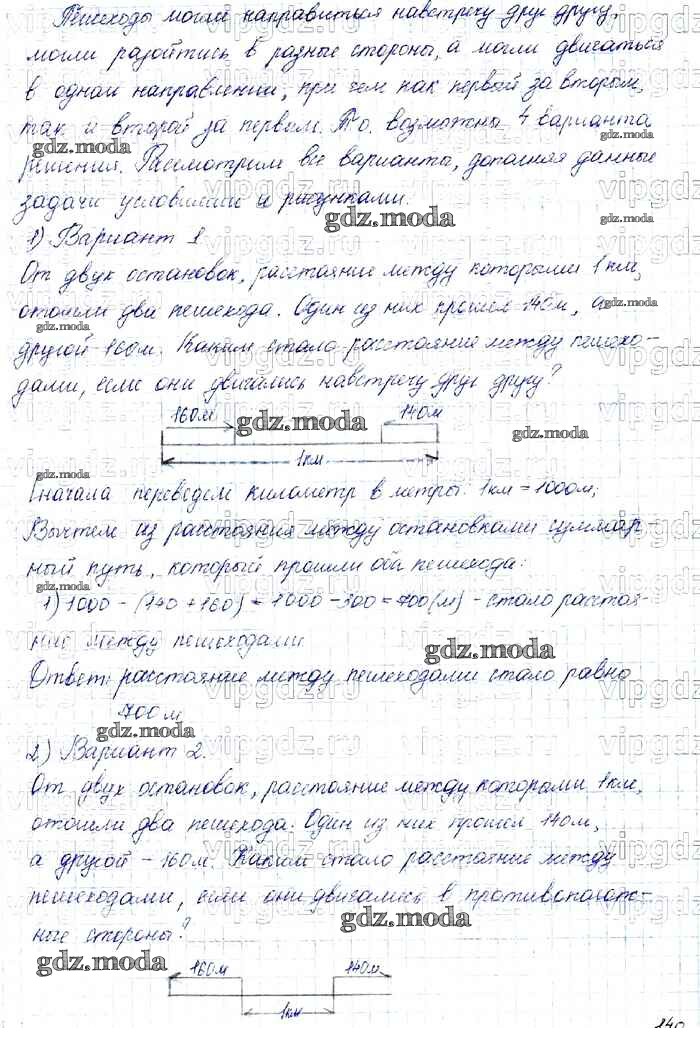 Пешеходы могли направиться навстречу друг другу,
могли разойтись в разные стороны, а могли двигаться
в одном направлении, при чем как первый за вторым,
так и второй за первым. Т.о. возможны 4 варианта
gdz.moda
решения. Рассмотрим все варианты, дополняя данные
задачи условиями и рисунками.
gdz.moda
1) Вариант 1
От двух остановок, расстояние между которыми 1 км,
отошли два пешехода. Один из них прошел 140м, а
gdz.moda
другой 160м. Каким стало расстояние между пешехо-
дами, если они двигались навстречу друг другу?
160м gdz.moda 140м
gdz.moda
1км
gdz.moda
Сначала переведем километр в метры: 1км = 1000м;
Вычтем из расстояния между остановками суммар-
ный путь, который прошли оба пешехода:
gdz.moda
1) 1000 - (140 + 160) = 1000 - 300 = 700(м) - стало расстоя-
ние между пешеходами.
gdz.moda
Ответ: расстояние между пешеходами стало равно
700м
gdz.moda
2) Вариант 2.
От двух остановок, расстояние между которыми 1км,
отошли два пешехода. Один из них прошел 140м,
а другой - 160м. Каким стало расстояние между
gdz.moda
пешеходами, если они двигались в противополож-
ные стороны?
gdz.moda
gdz.moda
160м 140м
1км
gdz.moda
140